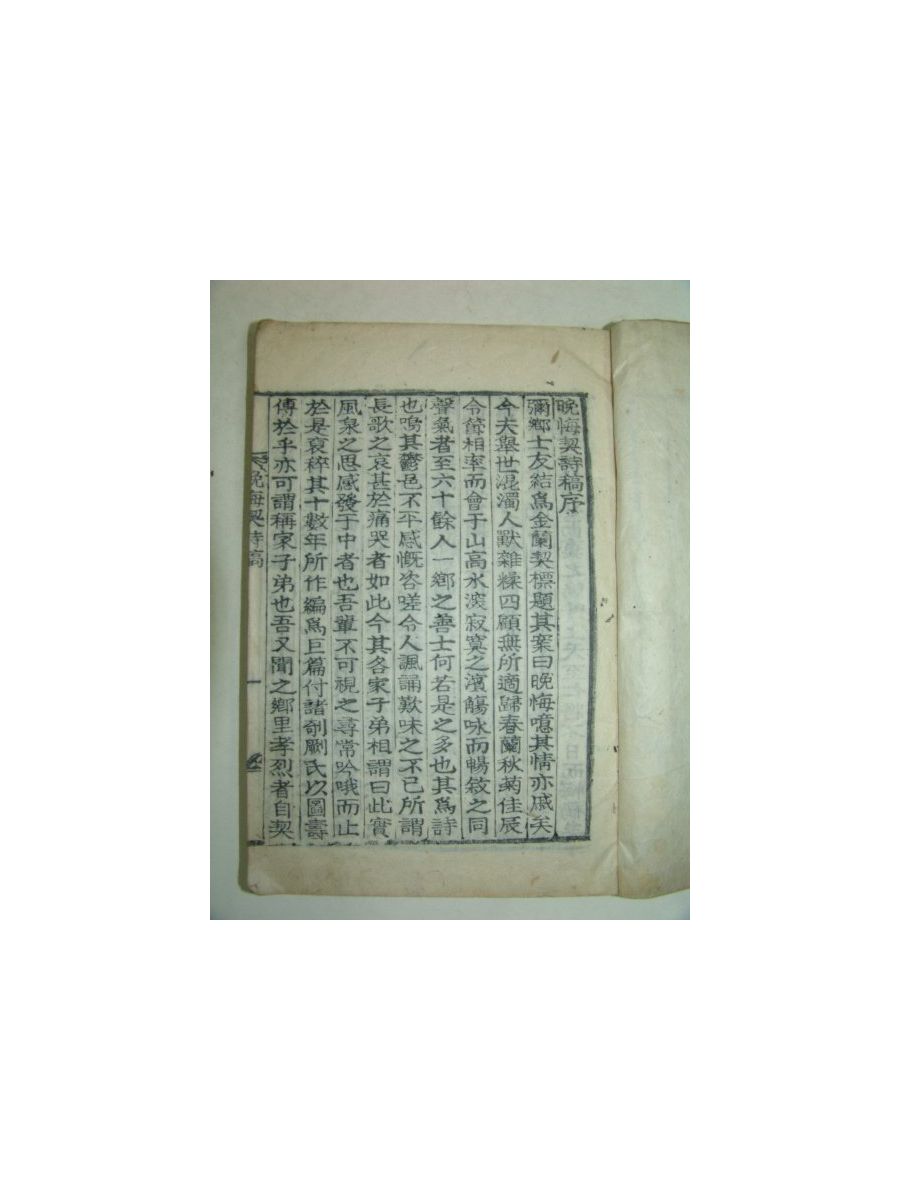 晩悔契詩稿序
彌鄉士友結爲金蘭契標題其案曰晩悔噫其情亦戚矣
今夫舉世混濁人獸雜糅四顧無所適歸春蘭秋菊佳辰
令節相率而會于山高水深寂寞之濱觴咏而暢敘之同
聲氣者至六十餘人一鄉之善士何若是之多也其爲詩
也鳴其鬱邑不平感慨咨嗟令人諷誦歎味之不已所謂
長歌之哀甚於痛哭者如此今其各家子弟相謂曰此實
風泉之思感發于中者也吾輩不可視之尋常吟哦而止
於是裒稡其十數年所作編爲巨篇付諸剞劂氏以圖壽
傳於乎亦可謂稱家子弟也吾又聞之鄉里孝烈者自契
晩悔契詩稿
一